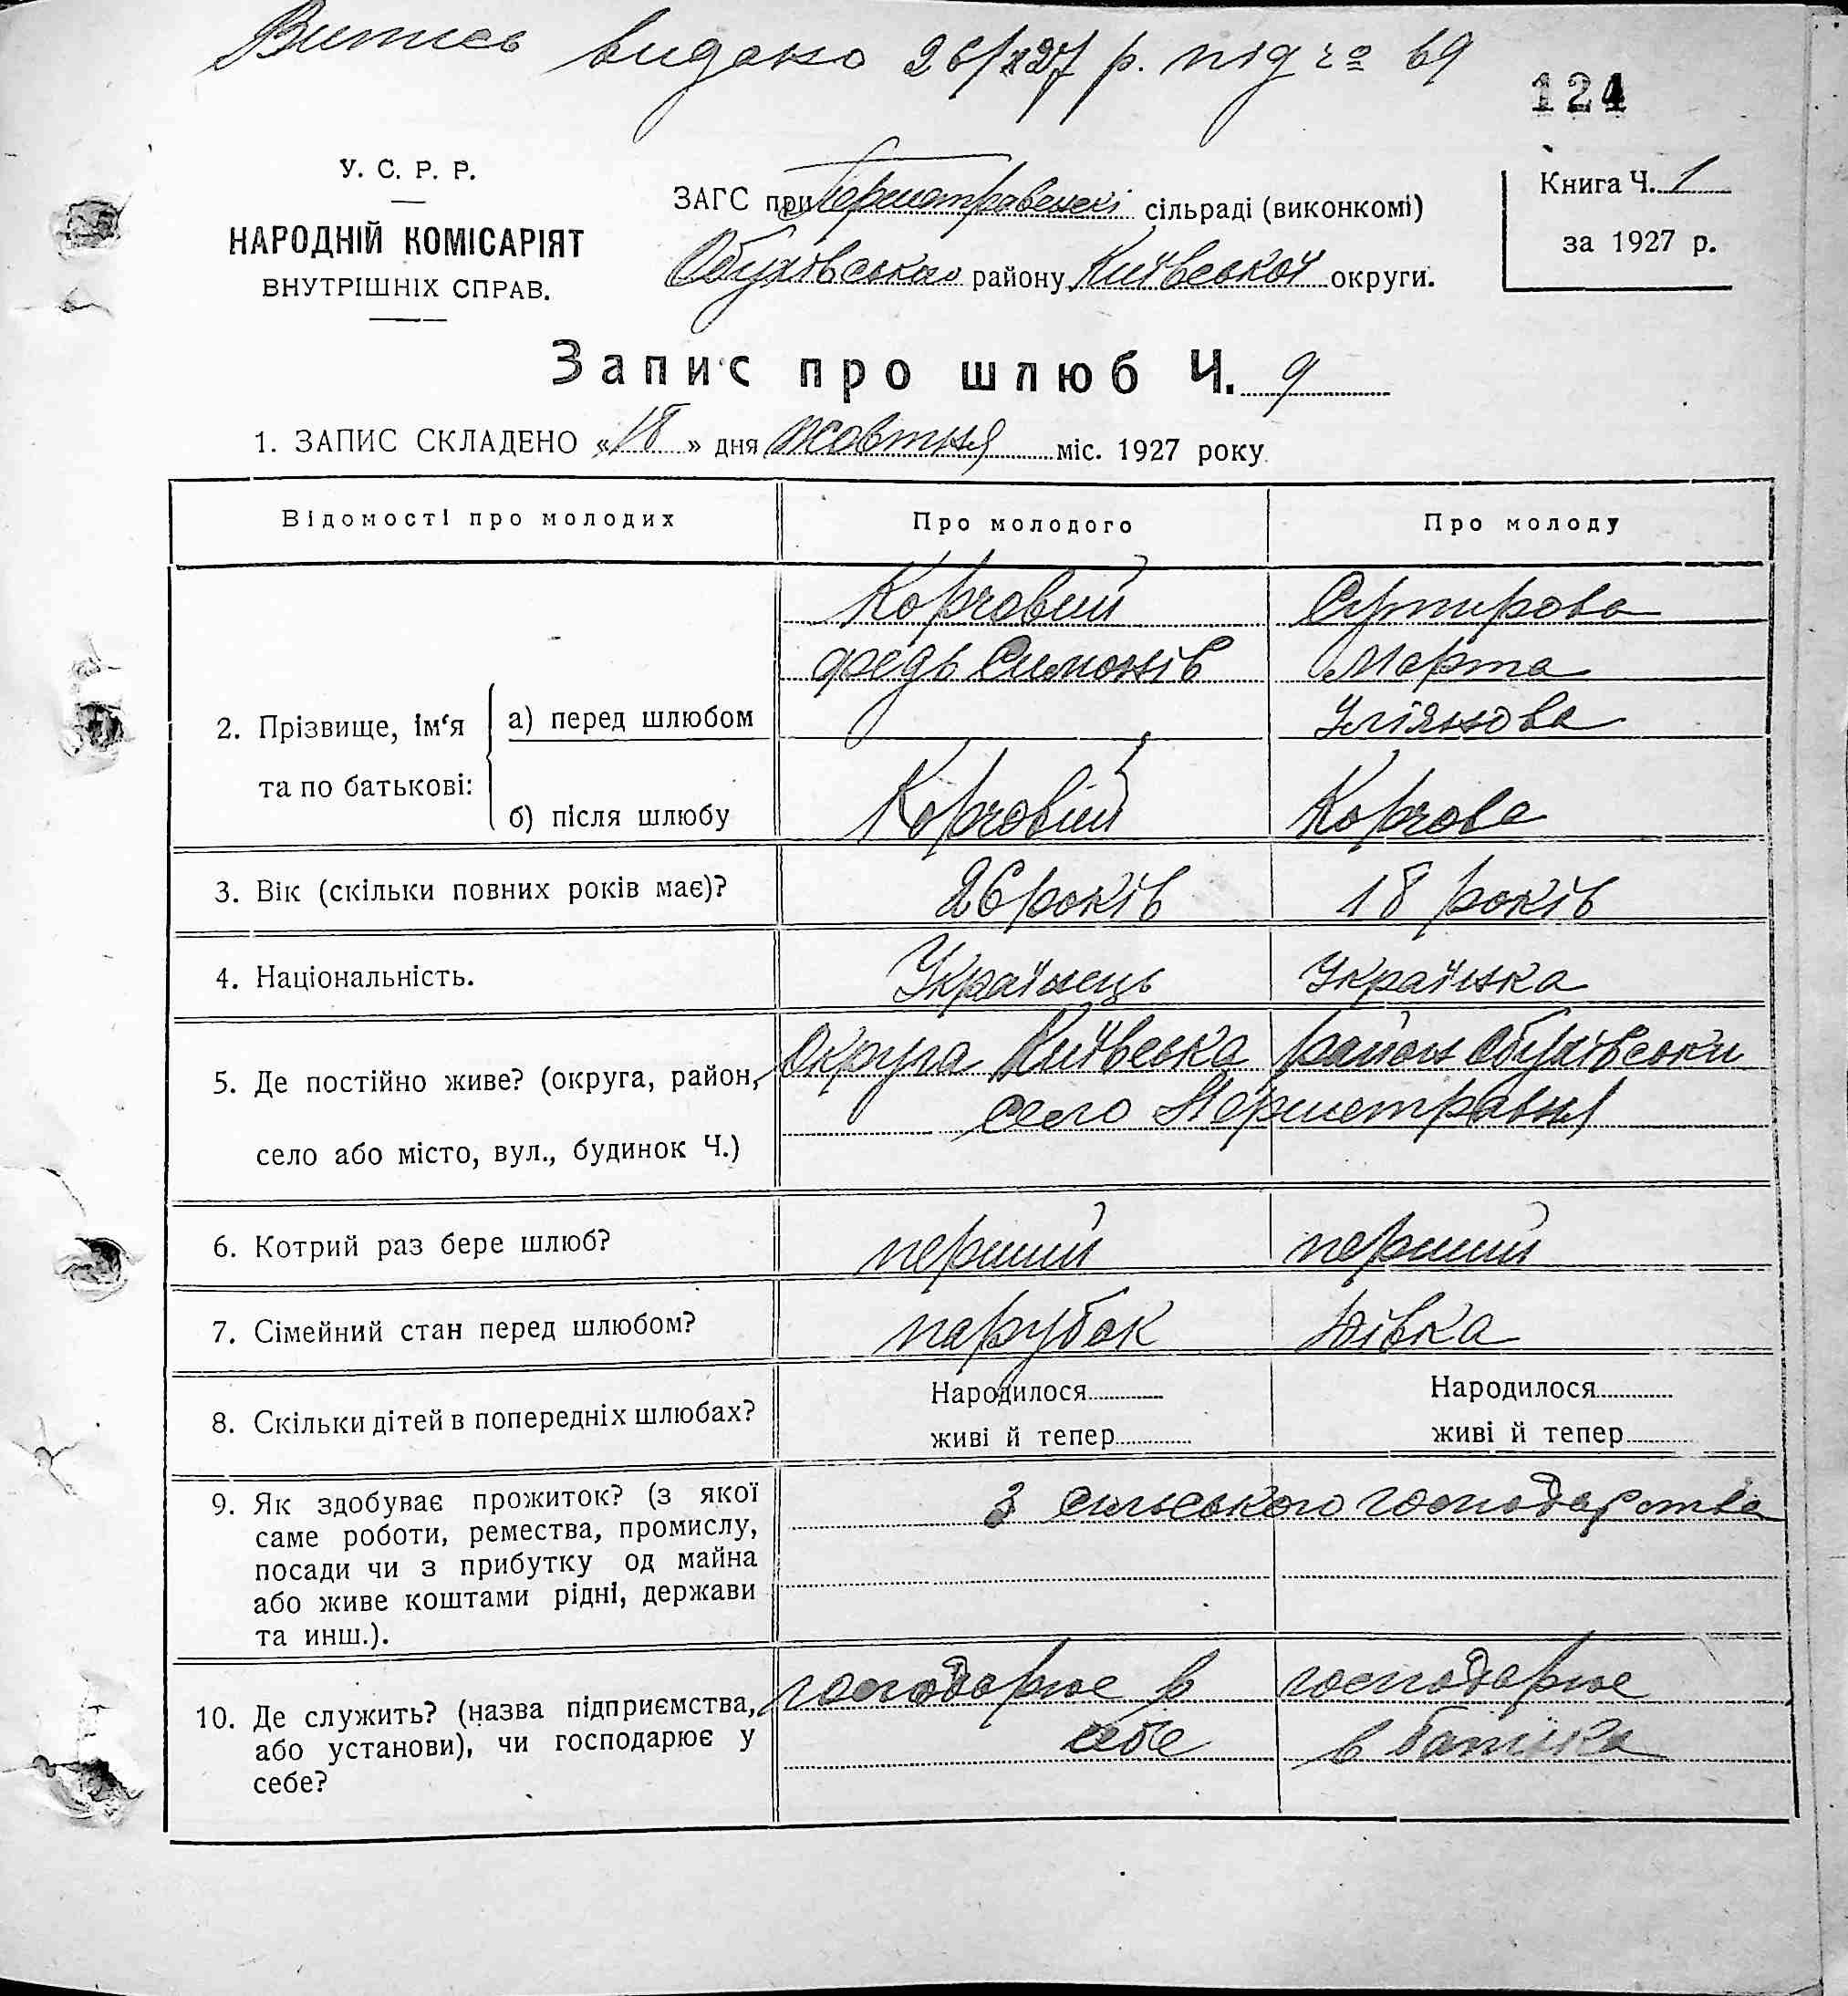 Витись видано 26/X 27 р. під ч. 69
124
У. С. Р. Р.
НАРОДНІЙ КОМІСАРІЯТ
ВНУТРІШНІХ СПРАВ.
ЗАГС при Першетравенскі сільраді (виконкомі)
Обухівською району Київської округи.
Книга Ч. 1
за 1927 р.
Запис про шлюб Ч. 9
1. ЗАПИС СКЛАДЕНО «18» дня жовтня міс. 1927 року
Відомості про молодих
Про молодого
Про молоду
2. Прізвище, ім‘я та по батькові:
а) перед шлюбом
Корчовий
федь Симонів
Марта
б) після шлюбу
Корчовий
Корчова
3. Вік (скільки повних років має)?
26 років
18 років
4. Національність.
Українець
Українка
5. Де постійно живе? (округа, район,
село або місто, вул., будинок Ч.)
Округа Київська район Обухівськи
село Першетравня
6. Котрий раз бере шлюб?
перший
перший
7. Сімейний стан перед шлюбом?
парубок
дівка
8. Скільки дітей в попередніх шлюбах?
Народилося
живі й тепер
Народилося
живі й тепер
9. Як здобуває прожиток? (з якої
саме роботи, ремества, промислу,
посади чи з прибутку од майна
або живе коштами рідні, держави
та инш.).
З сильского господарства
10. Де служить? (назва підприємства,
або установи), чи господарює у
себе?
господарює в
себе
господарює
в батька